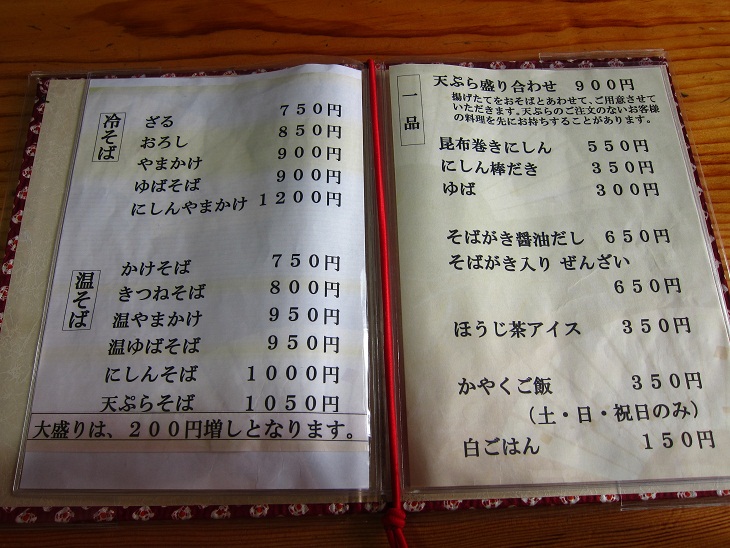 冷そば
ざる 750円
おろし 850円
やまかけ 900円
ゆばそば 900円
にしんやまかけ 1200円
温そば
かけそば 750円
きつねそば 800円
温やまかけ 950円
温ゆばそば 950円
にしんそば 1000円
天ぷらそば 1050円
大盛りは、200円増しとなります。
一品
天ぷら盛り合わせ 900円
揚げたてをおそばとあわせて、ご用意させて
いただきます。天ぷらのご注文のないお客様
の料理を先にお持ちすることがあります。
昆布巻きにしん 550円
にしん棒だき 350円
ゆば 300円
そばがき醤油だし 650円
そばがき入り ぜんざい
650円
ほうじ茶アイス 350円
かやくご飯 350円
（土・日・祝日のみ）
白ごはん 150円